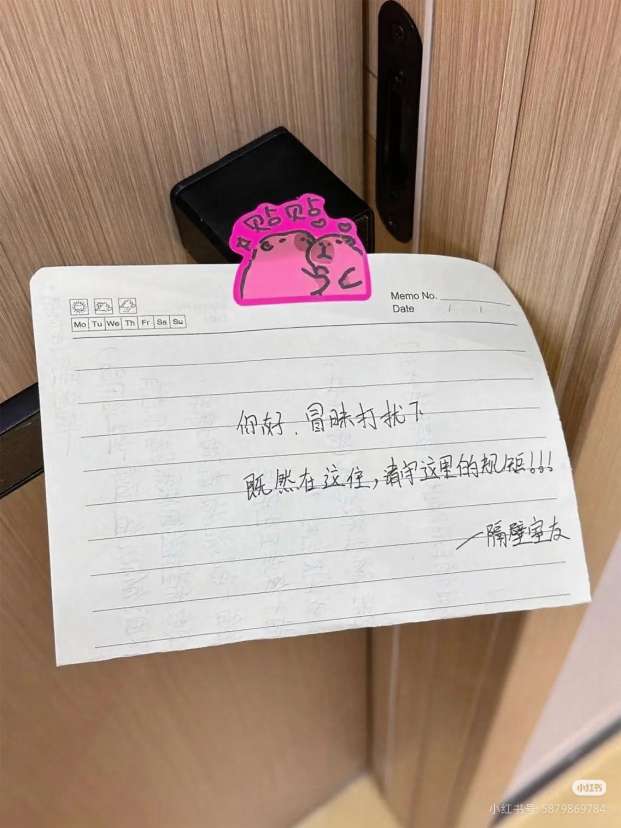 贴贴
Memo No.
Date / /
Mo Tu We Th Fr Sa Su
你好、冒昧打扰下
既然在这住，请守这里的规矩!!!
—隔壁室友
小红书
小红书号: 5879869784